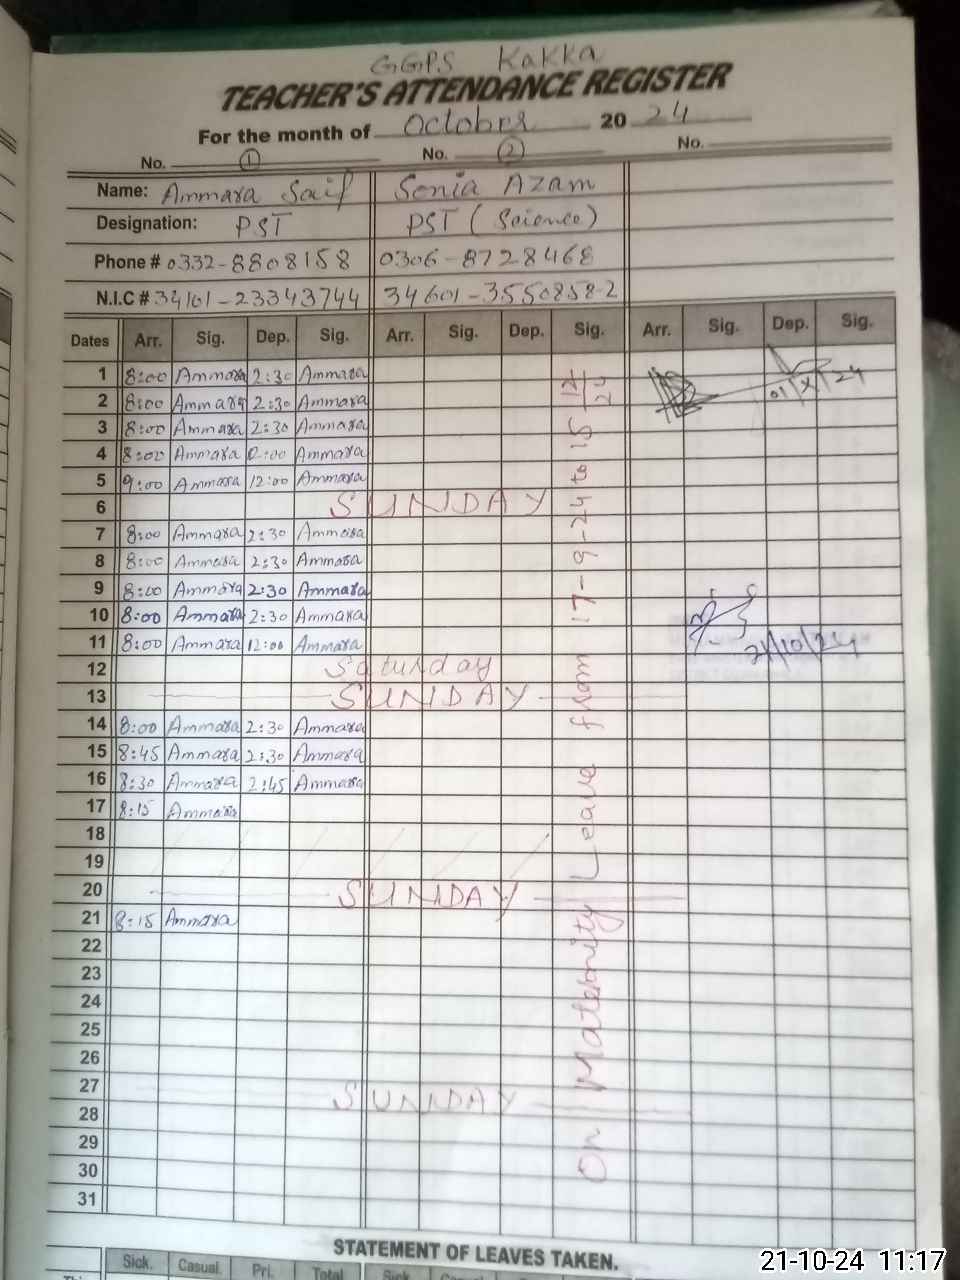 GGPS Kakka
TEACHER'S ATTENDANCE REGISTER
For the month of October 20 24
No. 1 No. 2 No.
Name: Ammara Saif Sonia Azam
Designation: PST PST (Science)
Phone # 0332-8808158 0306-8728468
N.I.C # 34101-23343744 34601-3550858-2
Dates Arr. Sig. Dep. Sig. Arr. Sig. Dep. Sig. Arr. Sig. Dep. Sig.
1 8:00 Ammara 2:30 Ammara 01/X/24
2 8:00 Ammara 2:30 Ammara
3 8:00 Ammara 2:30 Ammara
4 8:00 Ammara Ammara
5 9:00 Ammara 12:00 Ammara
6 SUNDAY
7 8:00 Ammara 2:30 Ammara
8 8:00 Ammara 2:30 Ammara
9 8:00 Ammara 2:30 Ammara
10 8:00 Ammara 2:30 Ammara
11 8:00 Ammara 12:00 Ammara 21/10/24
12 Saturday
13 SUNDAY
14 8:00 Ammara 2:30 Ammara
15 8:45 Ammara 2:30 Ammara
16 8:30 Ammara 2:45 Ammara
17 8:15 Ammara
18
19
20 SUNDAY
21 8:15 Ammara
22
23
24
25
26
27 SUNDAY
28
29
30
31
On Maternity Leave from 17-9-24 to 15 12/24
STATEMENT OF LEAVES TAKEN.
Sick. Casual Pri. Total Sick. Casual Pri. Total
21-10-24 11:17